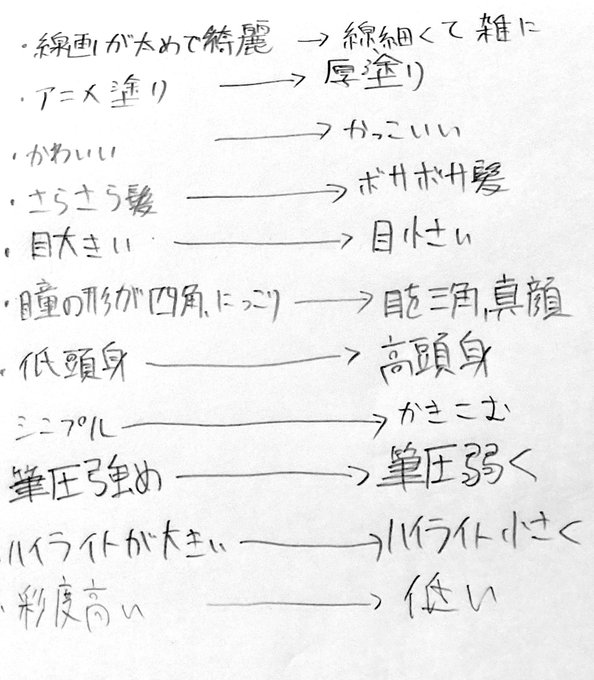 ・線画が太めで綺麗 → 線細くて雑に
・アニメ塗り → 厚塗り
・かわいい → かっこいい
・さらさら髪 → ボサボサ髪
・目大きい → 目小さい
・瞳の形が四角、にっこり → 目を三角、真顔
・低頭身 → 高頭身
シンプル → かきこむ
筆圧強め → 筆圧弱く
・ハイライトが大きい → ハイライト小さく
・彩度高い → 低い